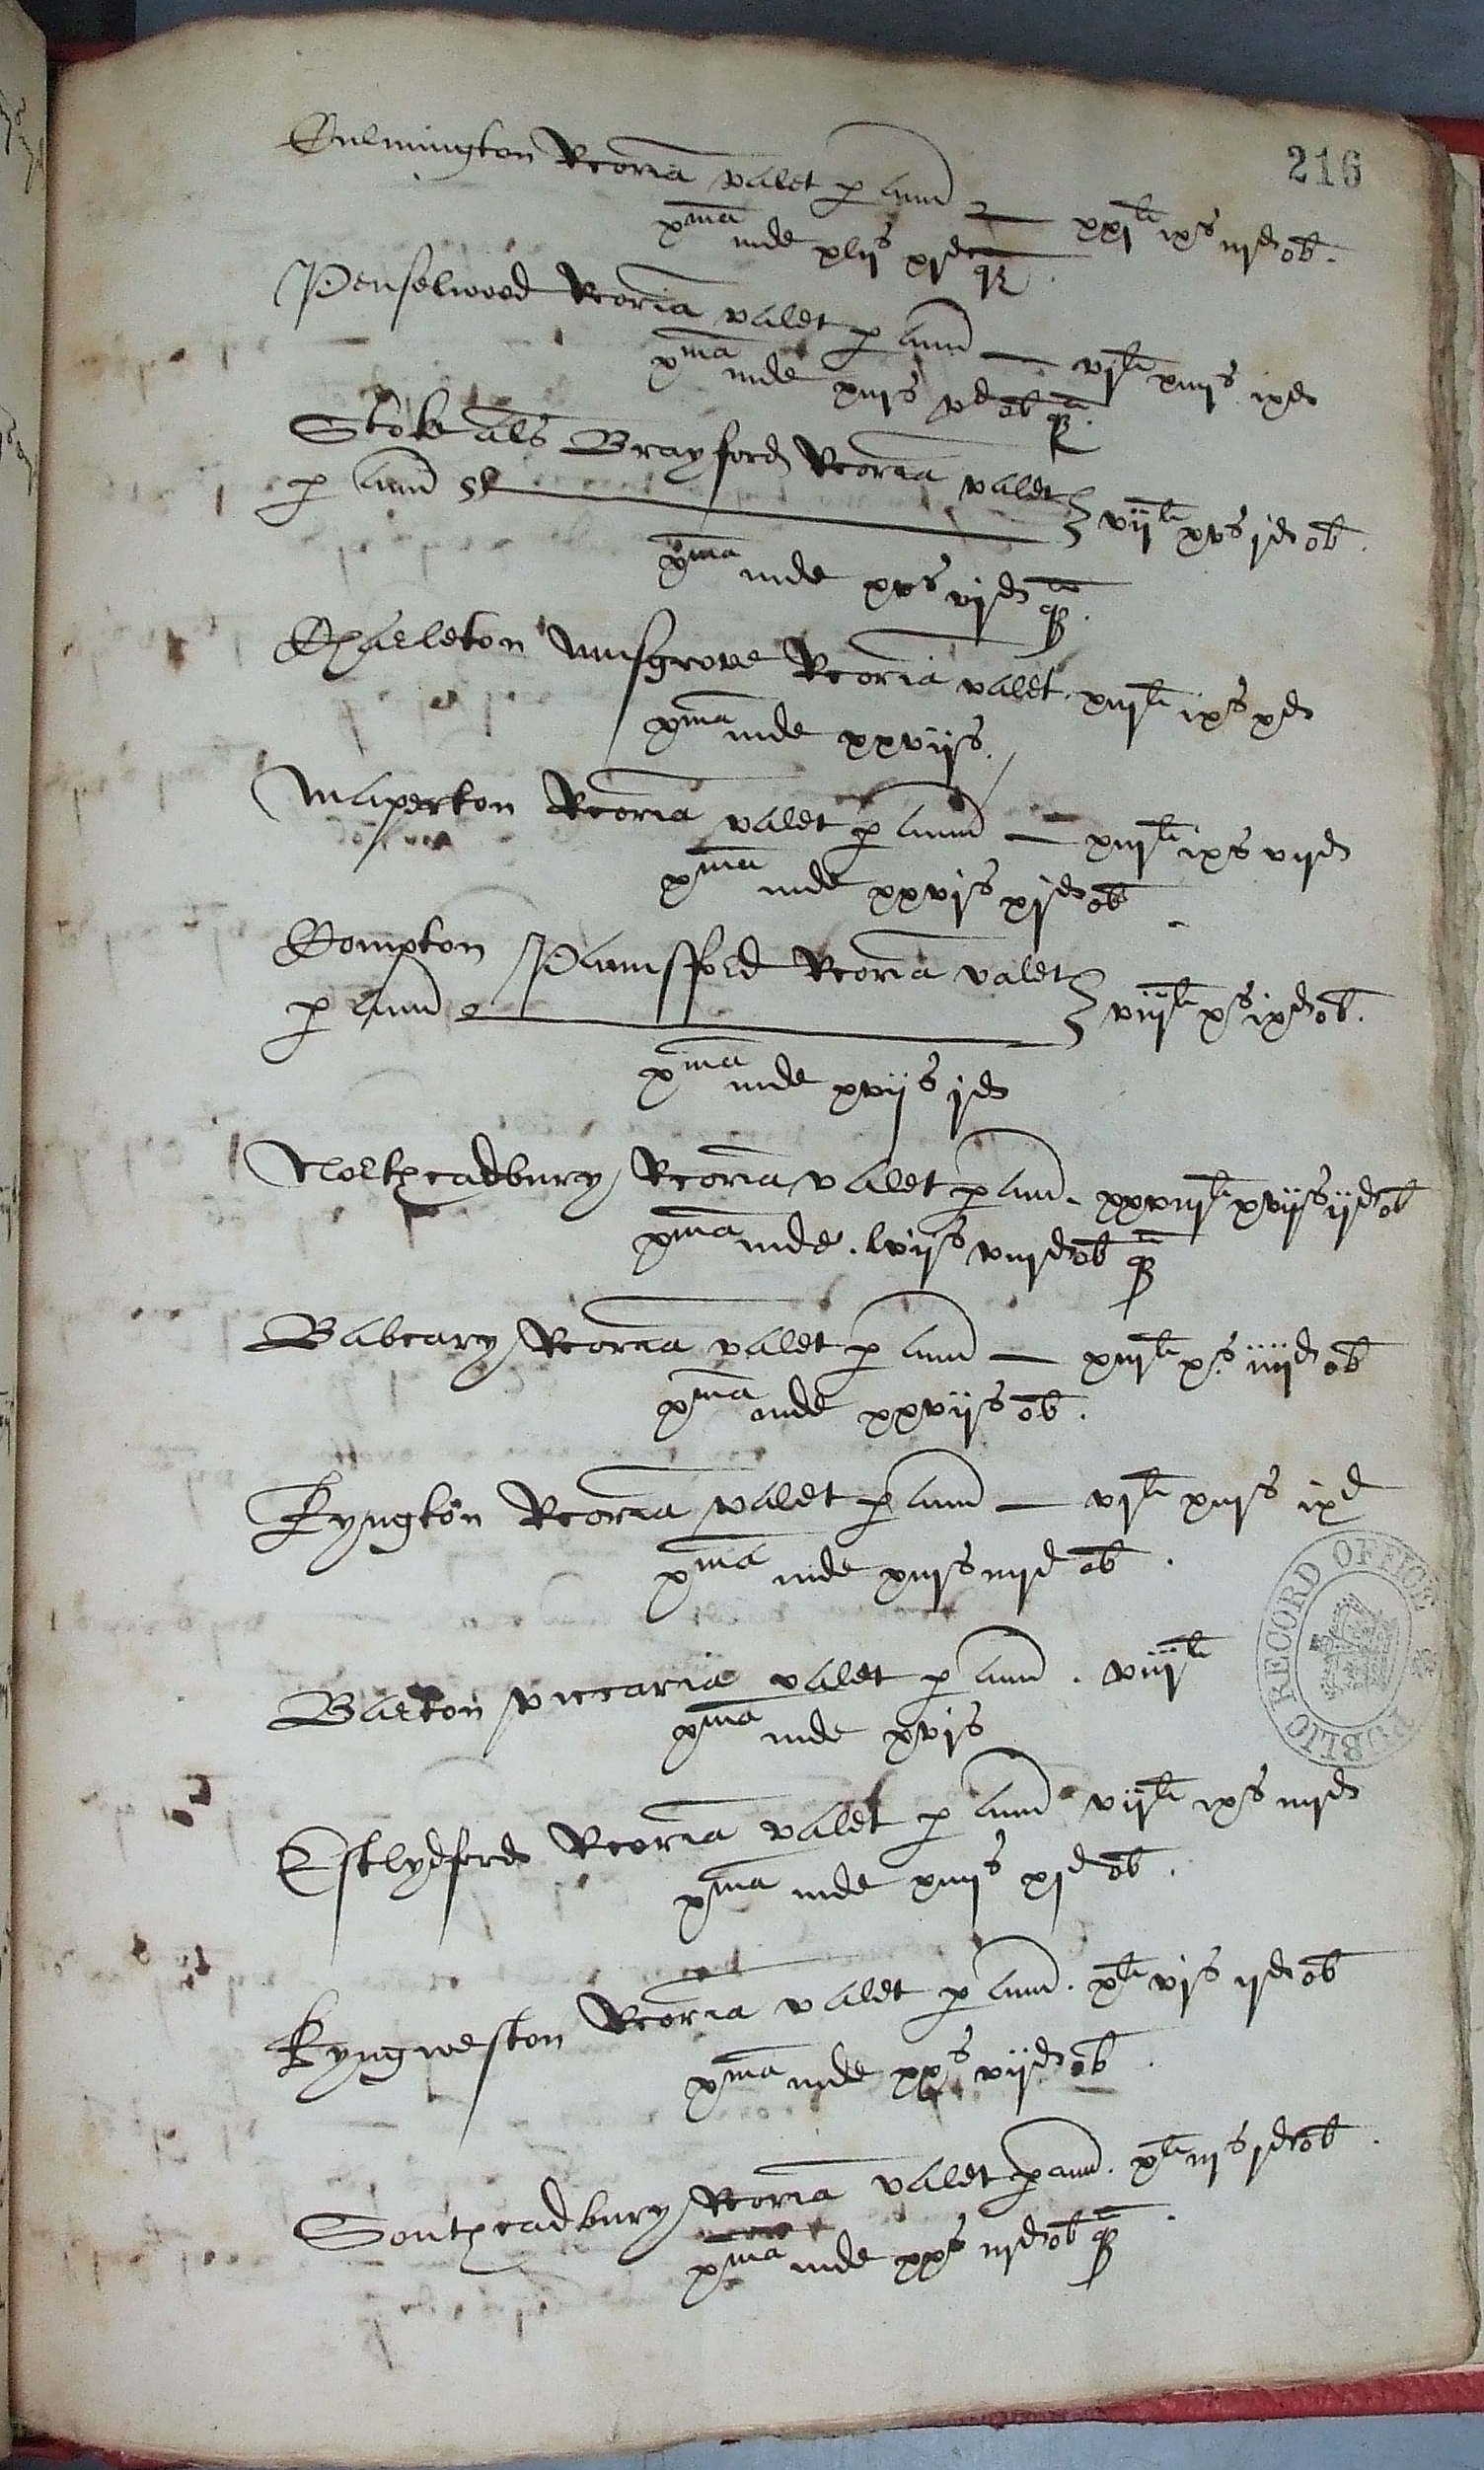 216
Culmington Rcoria valet p ann — xxjli ixs iijd ob.
xma inde xlijs xjd qa.
Penselwood Rcoria valet p ann — vjli xiiijs ixd
xma inde xiijs vd ob qa.
Stoke als Brayford Rcoria valet
p ann } vijli xvs jd ob.
xma inde xvs vjd qa.
Charleton musgrove Rcoria valet xiijli ixs xd
xma inde xxvijs.
Maperton Rcoria valet p ann — xiijli ixs vijd
xma inde xxvjs xjd ob
Compton Paunsfford Rcoria valet
p ann } viijli xs ixd ob.
xma inde xvijs jd
Northcadbury Rcoria valet p ann. xxviijli xvijs ijd ob
xma inde. lvijs viijd ob qa
Babcary Rcoria valet p ann — xiijli xs. iiijd ob
xma inde xxvijs ob.
Kyngton Rcoria valet p ann — vjli xiijs ixd
xma inde xiijs iiijd ob.
Barton viccaria valet p ann. viijli
xma inde xvjs
Estlydford Rcoria valet p ann vijli ixs iiijd
xma inde xiiijs xjd ob.
Kyngweston Rcoria valet p ann. xli vjs ijd ob
xma inde xxs vijd ob.
Southcadbury Rcoria valet p ann. xli iijs jd ob.
xma inde xxs iijd ob qa.
PUBLIC RECORD OFFICE